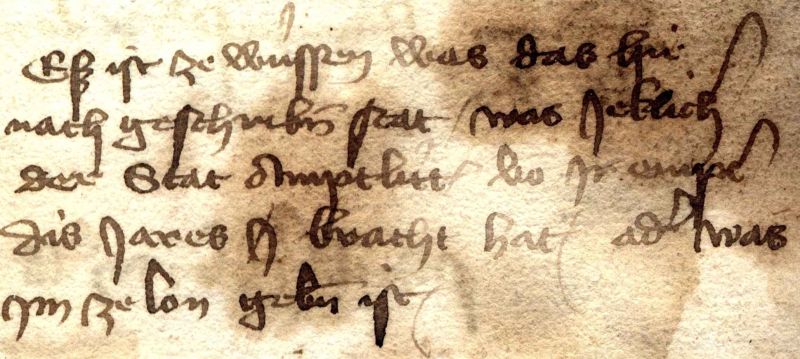 Eß ist ze wüssen was das hie
nach geschribn̄ stat / was Jeklich
der Stat Amptlüt / vō Jr empt
dis Jares J bracht hat / ad' was
Jm ze lon gebn̄ ist /